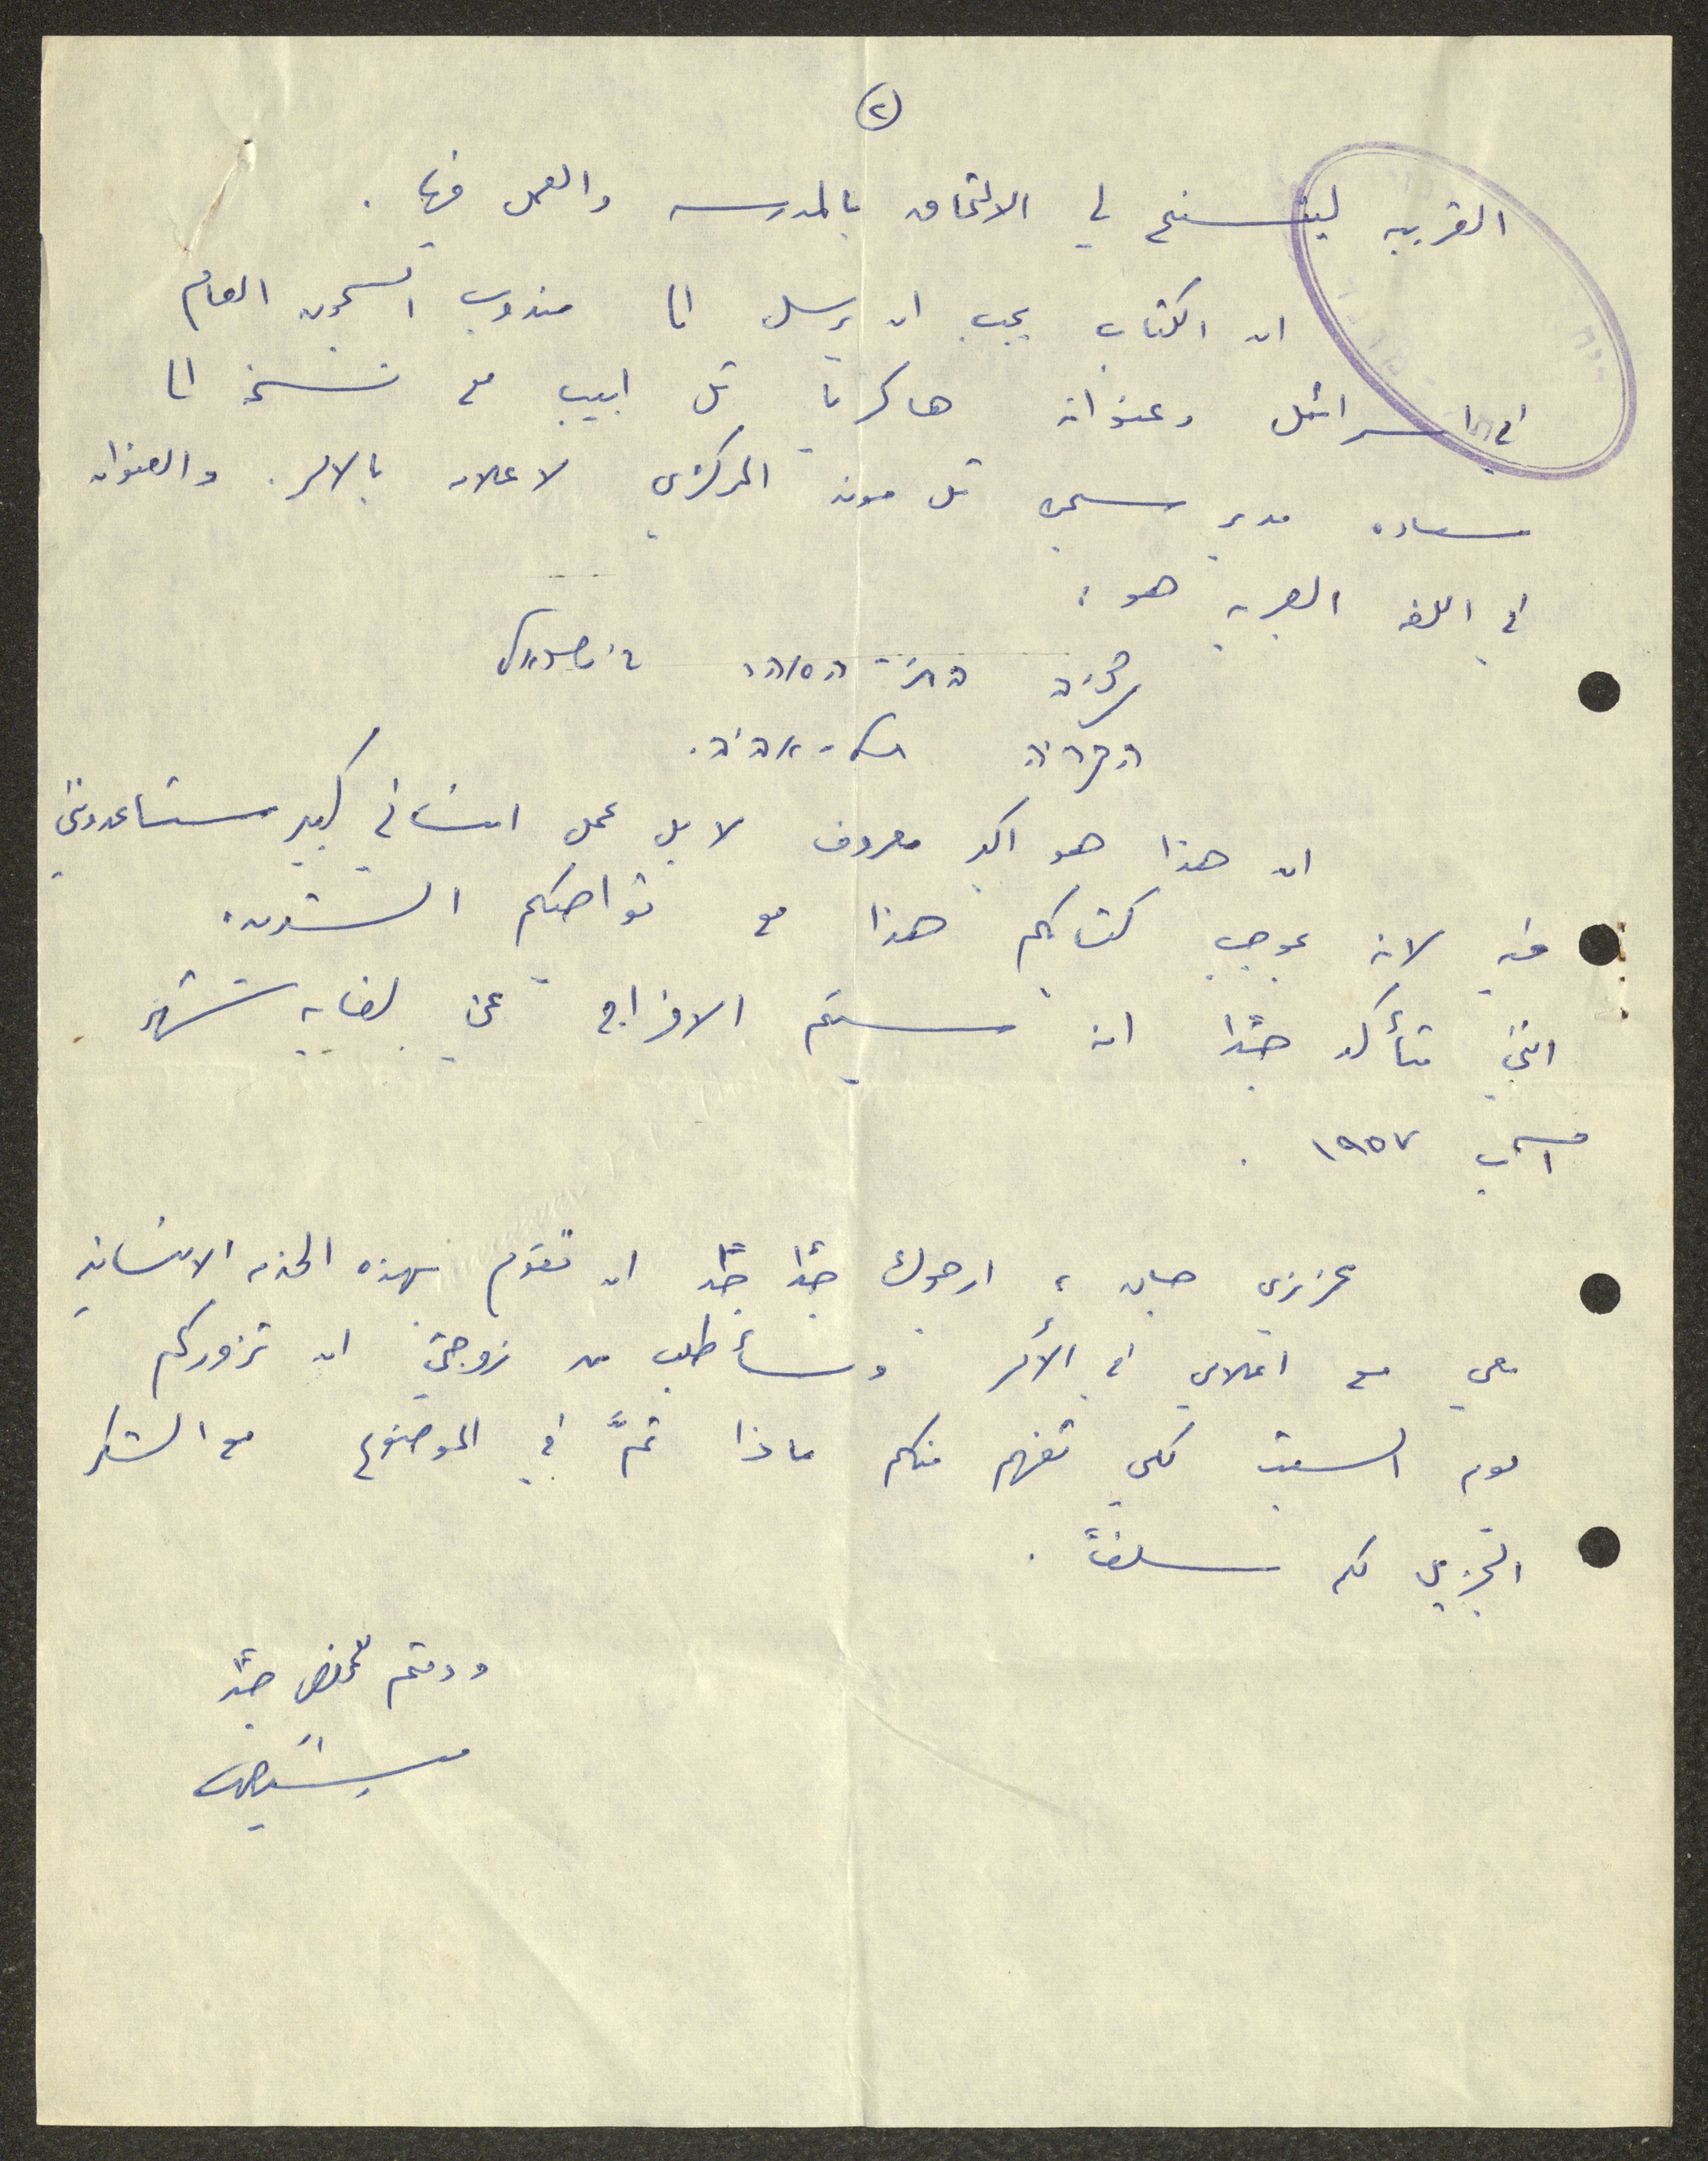 ٢
القريبه ليتسنى لي الالتحاق بالمدرسه والعمل فيها .
ان الكتاب يجب ان يرسل الى مندوب السجون العام
في اسرائيل وعنوانه هاكريا تل ابيب مع نسخه الى
سعاده مدير سجن تل موند المركزي لاعلامه بالامر. والعنوان
في اللغه العبريه هو :
נציב בתי הסוהר
הקריה תל-אביב.
ان هذا هو اكبر معروف لا بل عمل انساني كبير ستساعدونني
فيه لانه بموجب كتابكم هذا مع تواصيكم الشديده
انني متأكد جداً انه سيتم الافراج عني لغايه شهر
آب ١٩٥٧ .
عزيزي جان ، ارجوك جداً جداً ان تقوم بهذه الخدمه الانسانيه
معي مع اعلامي في الأمر وسأطلب من زوجتي ان تزوركم
يوم السبت لكي تفهم منكم ماذا تمَّ في الموضوع مع الشكر
الجزيل لكم سلفاً .
ودمتم للمخلص جداً